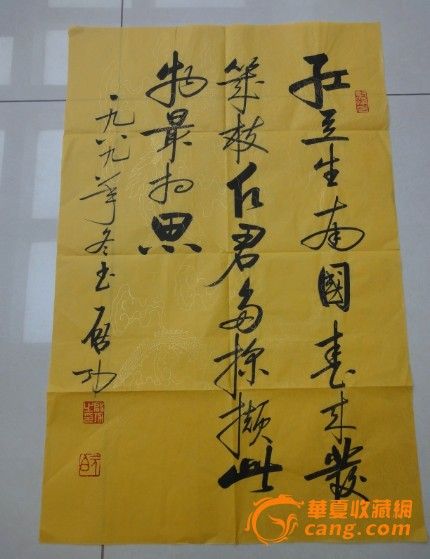 红豆生南國春来發
幾枝仁君多採擷此
物最相思
一九八九年冬书 启功
華夏收藏網
cang.com